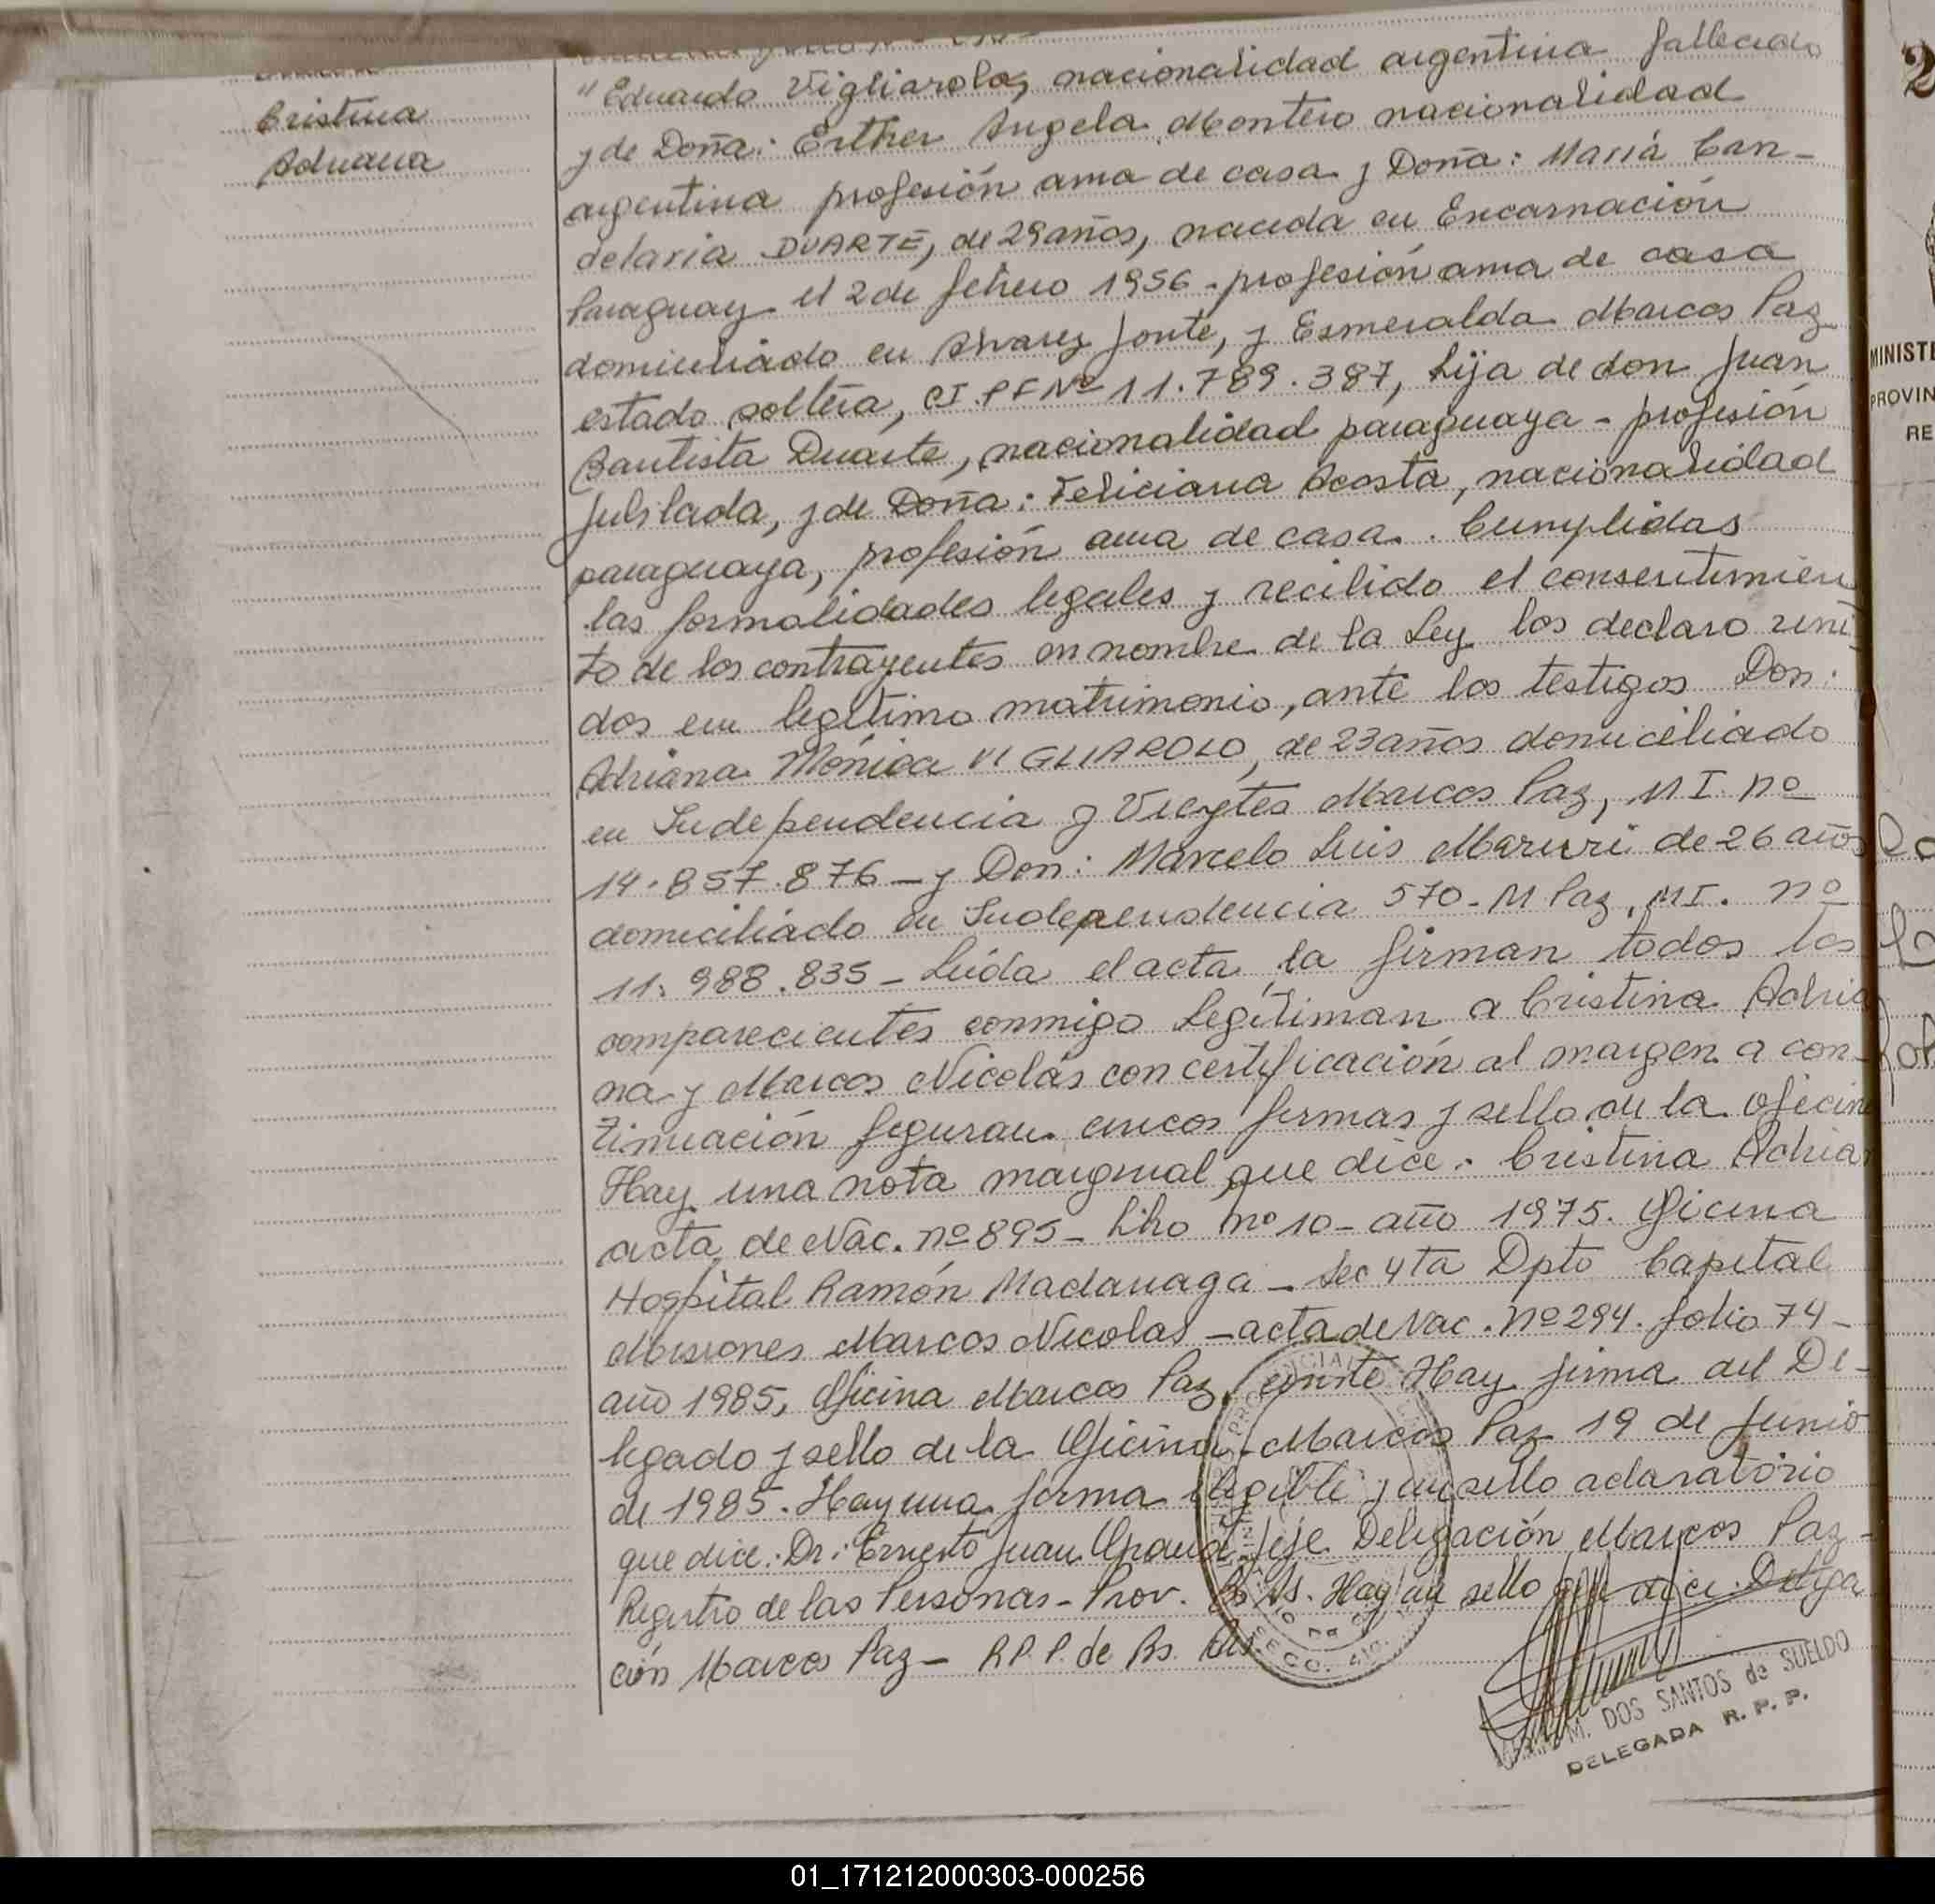 Cristina
Adriana
"Eduardo Vigliarolo, nacionalidad argentina fallecido
y de Doña: Esther Angela Montero nacionalidad
argentina profesión ama de casa y Doña: María Can-
delaria DUARTE, de 29 años, nacida en Encarnación
Paraguay el 2 de febrero 1956 - profesión ama de casa
domiciliado en Alvarez Jonte, y Esmeralda Marcos Paz
estado soltera, CI. PF Nº 11.789.387, hija de don Juan
Bautista Duarte, nacionalidad paraguaya - profesión
jubilada, y de Doña: Feliciana Acosta, nacionalidad
paraguaya, profesión ama de casa. Cumplidas
las formalidades legales y recibido el consentimien
to de los contrayentes en nombre de la Ley los declaro uni
dos en legítimo matrimonio, ante los testigos Don:
Adriana Mónica VIGLIAROLO, de 23 años domiciliado
en Independencia y Vieytes Marcos Paz, MI. nº
14.857.876 - y Don: Marcelo Luis Maruri de 26 años
domiciliado en Independencia 570 - M Paz, MI. nº
11.988.835 - Leída el acta, la firman todos los
comparecientes conmigo Legitiman a Cristina Adria
na y Marcos Nicolás con certificación al margen a con-
tinuación figuran cincos firmas y sello de la oficina
Hay una nota marginal que dice: Cristina Adrian
acta de Nac. nº 895 - Libro nº 10 - año 1975. Oficina
Hospital Ramón Madariaga - Sec 4ta Dpto Capital
Misiones Marcos Nicolas - acta de Nac. nº 294. folio 74 -
año 1985, Oficina Marcos Paz, conste Hay firma del De-
legado y sello de la Oficina - Marcos Paz 19 de Junio
de 1985. Hay una firma ilegible y un sello aclaratorio
que dice: Dr: Ernesto Juan Jefe Delegación Marcos Paz -
Registro de las Personas - Prov. Bs As. Hay un sello que dice: Delega
ción Marcos Paz - R.P.P. de Bs. As.
M. DOS SANTOS de SUELDO
DELEGADA R. P. P.
2
MINISTE
PROVIN
RE
01_171212000303-000256